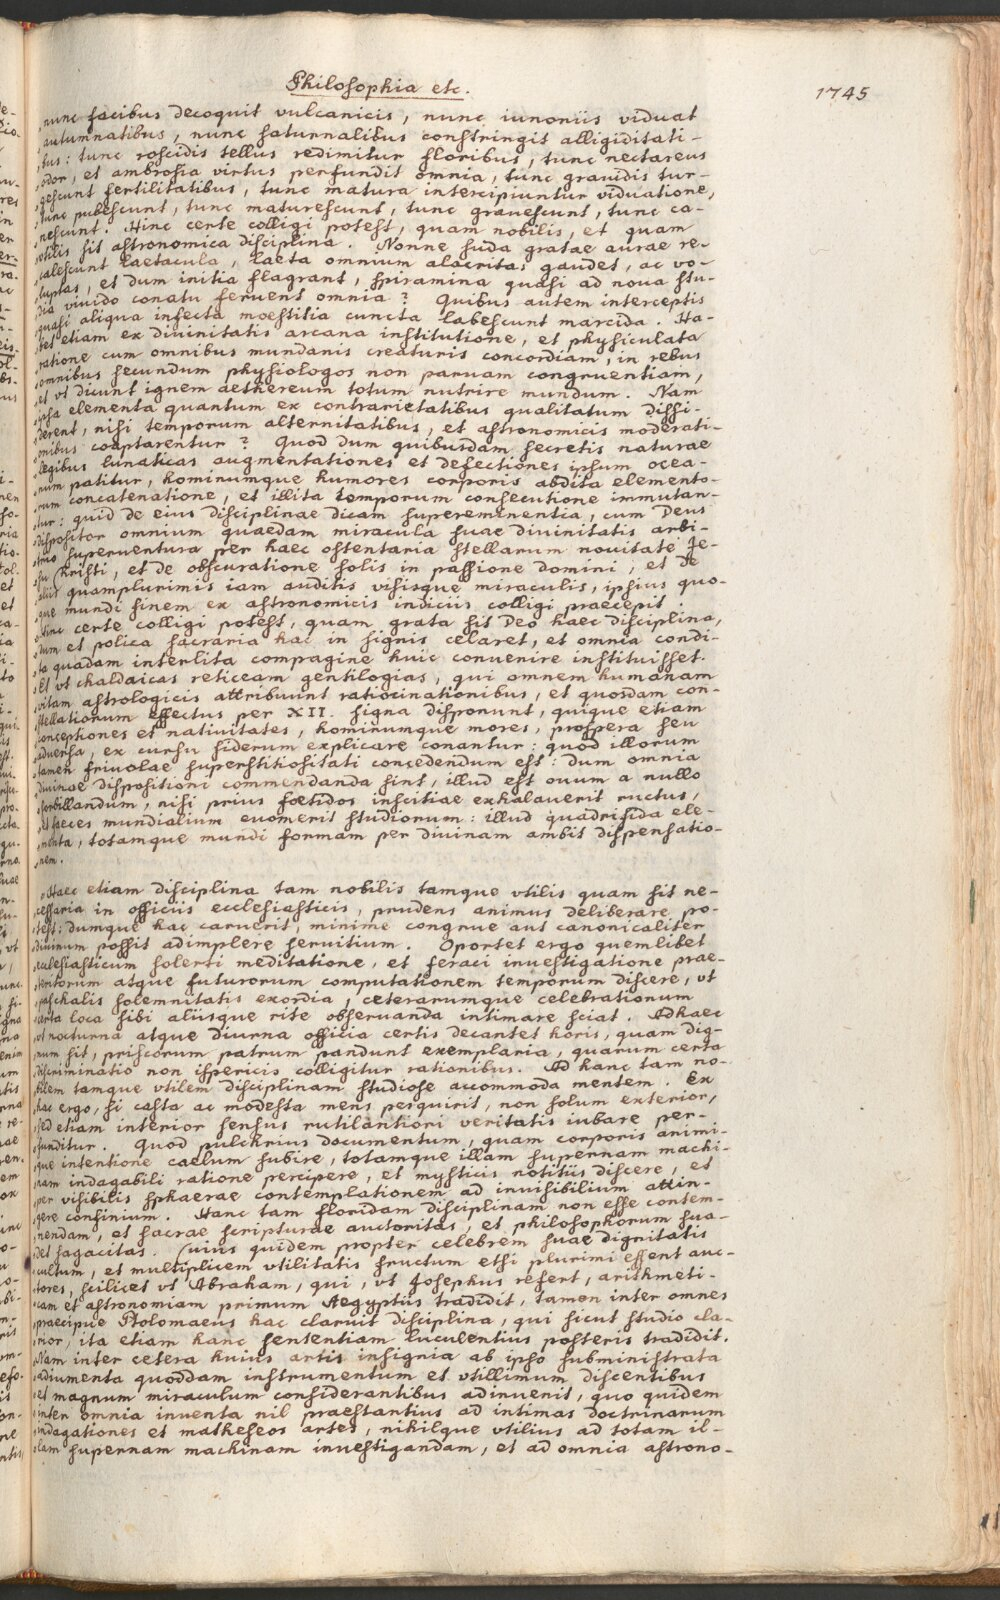 Philosophia etc.
1745
„nunc facibus decoquit vulcanicis, nunc iunoniis viduat
„autumnatibus, nunc saturnalibus constringit alligiditati-
„bus: tunc roscidis tellus redimitur floribus, tunc nectareus
„odor, et ambrosia virtus perfundit omnia, tunc grauidis tur-
„gescunt fertilitatibus, tunc matura intercipiuntur viduatione,
„tunc pubescunt, tunc maturescunt, tunc grauescunt, tunc ca-
„nescunt. Hinc certe colligi potest, quam nobilis, et quam
„vtilis sit astronomica disciplina. Nonne suda gratae aurae re-
„calescunt laetacula, laeta omnium alacritas gaudet, ac vo-
„luptas, et dum initia flagrant, spiramina quasi ad noua stu-
„dia viuido conatu feruent omnia? Quibus autem interceptis
„quasi aliqua infecta moestitia cuncta labescunt marcida. Ha-
„bet etiam ex diuinitatis arcana institutione, et physiculata
„ratione cum omnibus mundanis creaturis concordiam, in rebus
„omnibus secundum physiologos non paruam congruentiam,
„et vt dicunt ignem aethereum totum nutrire mundum. Nam
„ipsa elementa quantum ex contrarietatibus qualitatum dissi-
„derent, nisi temporum alternitatibus, et astronomicis moderati-
„onibus coaptarentur? Quod dum quibusdam secretis naturae
„legibus lunaticas augmentationes et defectiones ipsum ocea-
„num patitur, hominumque humores corporis abdita elemento-
„rum concatenatione, et illita temporum consecutione immutan-
„tur: quid de eius disciplinae dicam supereminentia, cum Deus
„dispositor omnium quaedam miracula suae diuinitatis arbi-
„trio superuentura per haec ostentaria stellarum nouitate Je-
„su Christi, et de obscuratione solis in passione domini, et de
„aliis quamplurimis iam auditis visisque miraculis, ipsius quo-
„que mundi finem ex astronomicis indiciis colligi praecepit.
„Hinc certe colligi potest, quam grata sit Deo haec disciplina,
„dum et polica sacraria hac in signis celaret, et omnia condi-
„ta quadam interlita compagine huic conuenire instituisset.
„Et vt chaldaicas reticeam gentilogias, qui omnem humanam
„vitam astrologicis attribuunt ratiocinationibus, et quosdam con-
„stellationum effectus per XII. signa disponunt, quique etiam
„conceptiones et natiuitates, hominumque mores, prospera seu
„aduersa, ex cursu siderum explicare conantur: quod illorum
„tamen friuolae superstitiositati concedendum est: dum omnia
„diuinae dispositioni commendanda sint, illud est ouum a nullo
„sorbillandum, nisi prius foetidos inscitiae exhalauerit ructus,
„et faeces mundialium euomerit studiorum: illud quadrifida ele-
„menta, totamque mundi formam per diuinam ambit dispensatio-
„nem.
„Haec etiam disciplina tam nobilis tamque vtilis quam sit ne-
„cessaria in officiis ecclesiasticis, prudens animus deliberare po-
„test: dumque hac caruerit, minime congrue aut canonicaliter
„diuinum possit adimplere seruitium. Oportet ergo quemlibet
„eclesiasticum solerti meditatione, et feraci inuestigatione prae-
„teritorum atque futurorum computationem temporum discere, vt
„paschalis solemnitatis exordia, ceterarumque celebrationum
„certa loca sibi aliisque rite obseruanda intimare sciat. Ad haec
„vt nocturna atque diurna officia certis decantet horis, quam dig-
„num sit, priscorum patrum pandunt exemplaria, quarum certa
„discriminatio non ispericis colligitur rationibus. Ad hanc tam no-
„bilem tamque vtilem disciplinam studiose accommoda mentem. Ex
„hac ergo, si casta ac modesta mens perquirit, non solum exterior,
„sed etiam interior sensus rutilantiori veritatis iubare per-
„funditur. Quod pulchrius documentum, quam corporis animi-
„que intentione caelum subire, totamque illam supernam machi-
„nam indagabili ratione percipere, et mysticis notitiis discere, et
„per visibilis sphaerae contemplationem ad inuisibilium attin-
„gere confinium. Hanc tam floridam disciplinam non esse contem-
„nendam, et sacrae scripturae auctoritas, et philosophorum sua-
„det sagacitas. Cuius quidem propter celebrem suae dignitatis
„cultum, et multiplicem vtilitatis fructum etsi plurimi essent auc-
„tores, scilicet vt Abraham, qui, vt Josephus refert, arithmeti-
„cam et astronomiam primum Aegyptiis tradidit, tamen inter omnes
„praecipue Ptolomaeus hac claruit disciplina, qui sicut studio cla-
„rior, ita etiam hanc sententiam luculentius posteris tradidit.
„Nam inter cetera huius artis insignia ab ipso subministrata
„adiumenta quoddam instrumentum et vtillimum discentibus
„et magnum miraculum considerantibus adinuenit, quo quidem
„inter omnia inuenta nil praestantius ad intimas doctrinarum
„indagationes et matheseos artes, nihilque vtilius ad totam il-
„lam supernam machinam inuestigandam, et ad omnia astrono-